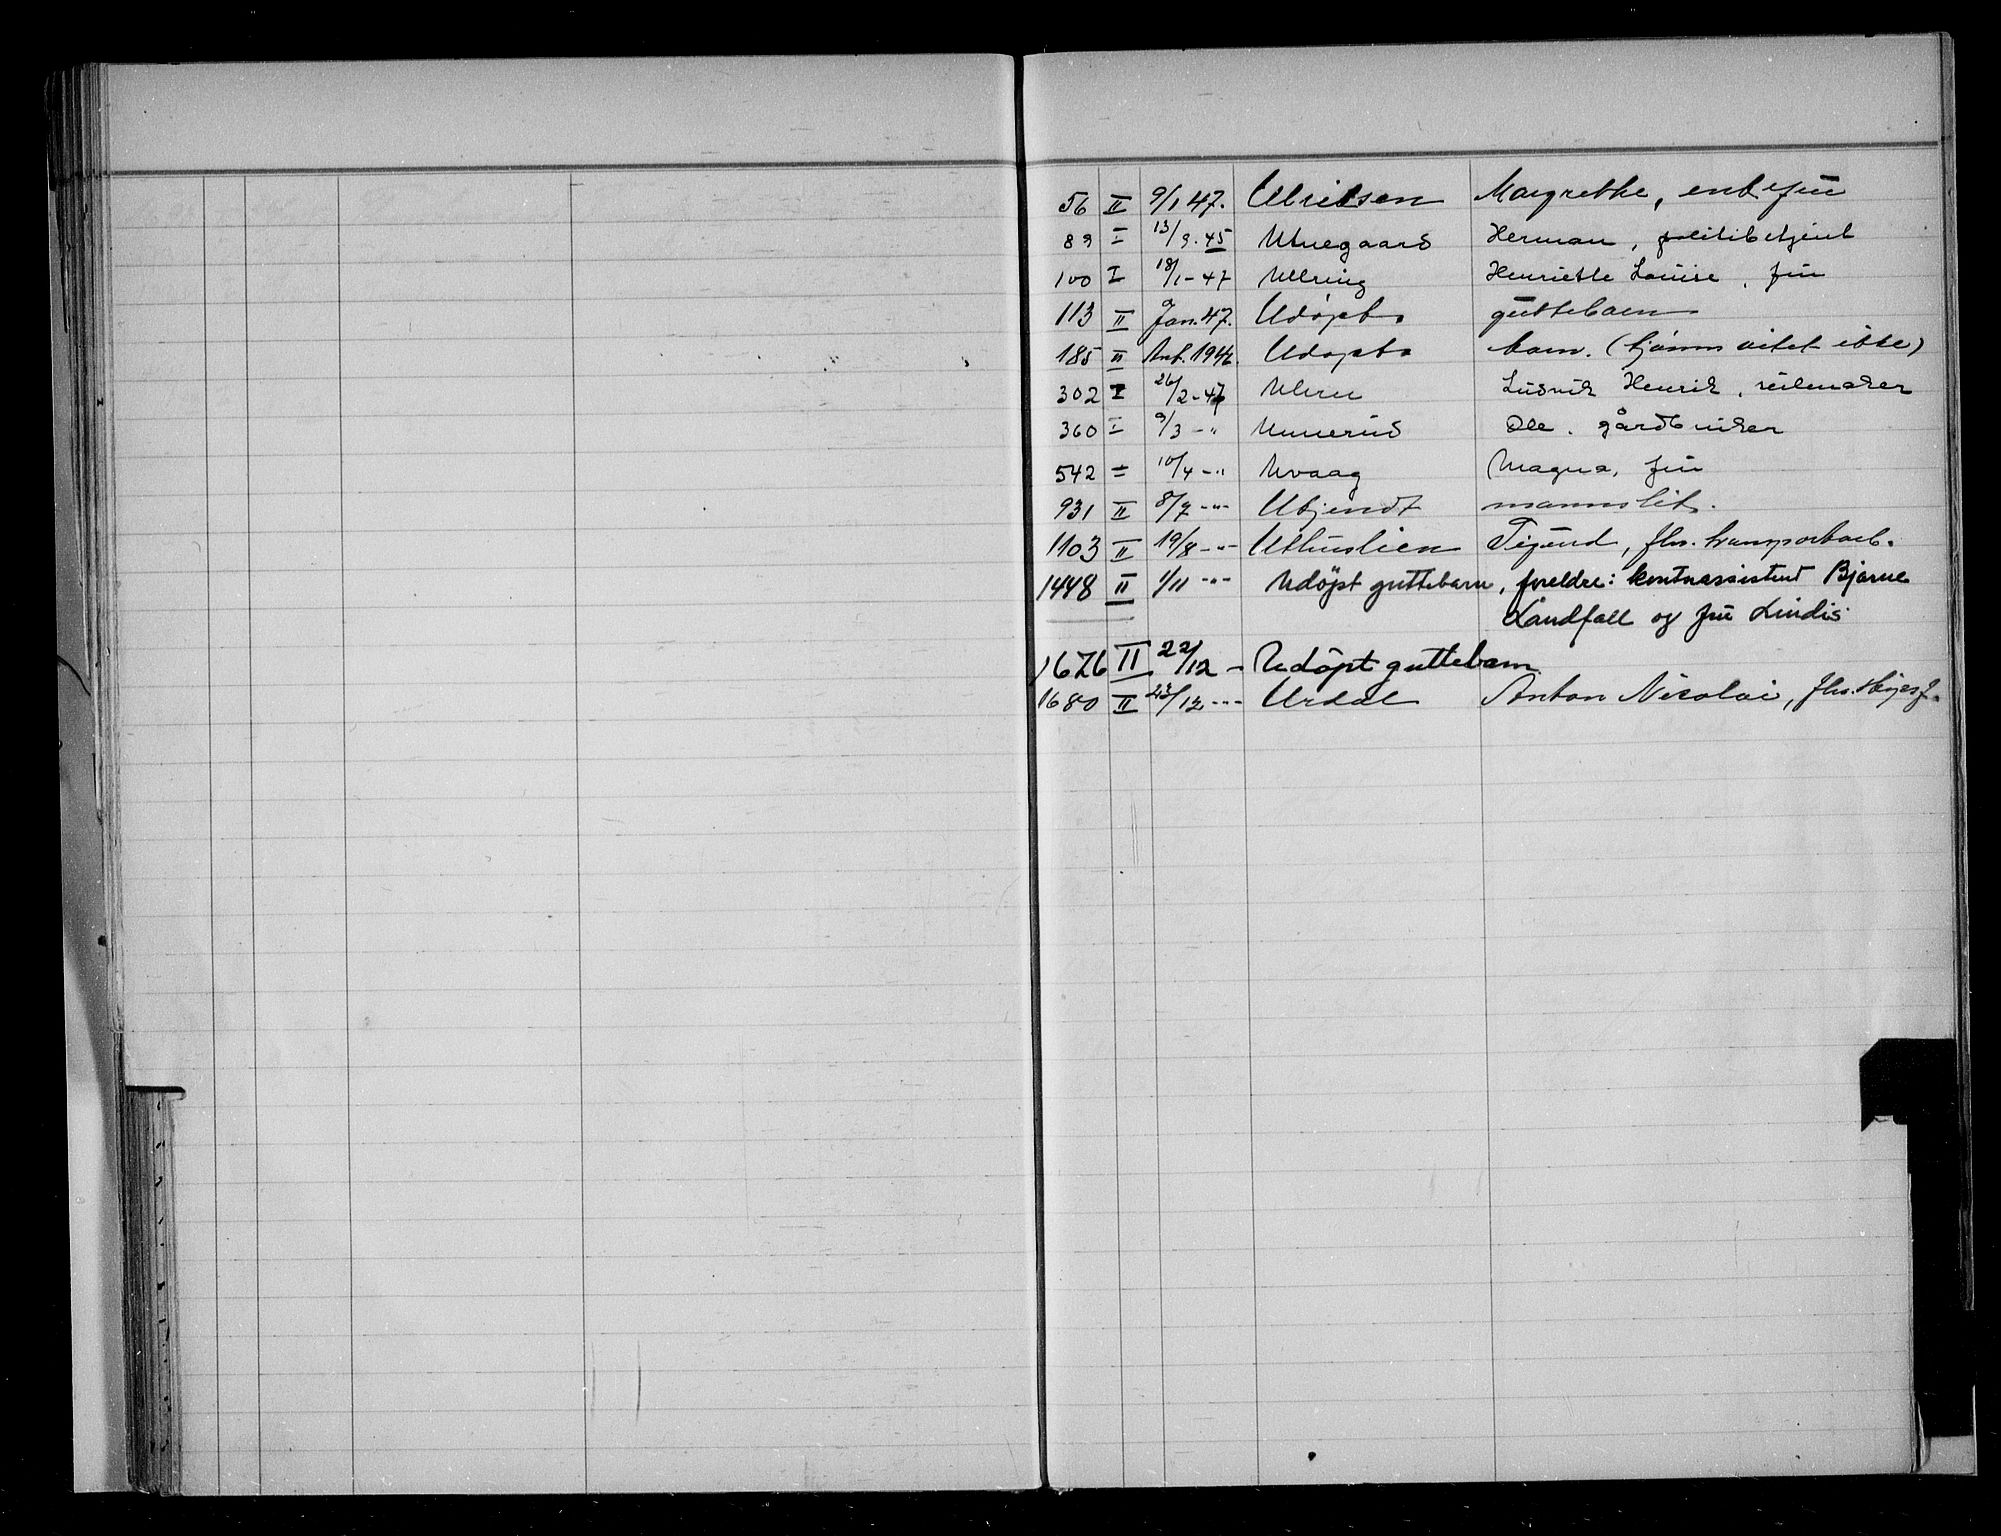 56 II 9/1 47. Ulriksen Margrethe, enkefru
89 I 13/9.45 Utnegaard Herman, politibetjent
100 I 18/1-47 Ullring Henriette Louise, fru
113 II Jan.47. Udøpt guttebarn
185 II Udøpt barn. (kjønn vites ikke)
302 I 26/2-47 Ludvik Henrik, seilmaker
360 I 9/3 -" Unnerud Ole. gårdbruker
542 I 10/4 -" Uvaag Magna, fru
931 II 8/7 -"- Ukjendt mannslik.
1103 II 19/8 -"- Uthuslien Sigurd, fhv. transportarb.
1448 II 1/11 -"- Udøpt guttebarn, foreldre: kontorassistent Bjarne
Landfall og fru Lindis
1676 II 22/12 - Udøpt guttebarn
1680 II 23/12 -"- Urdal Anton Nicolai, fhv.